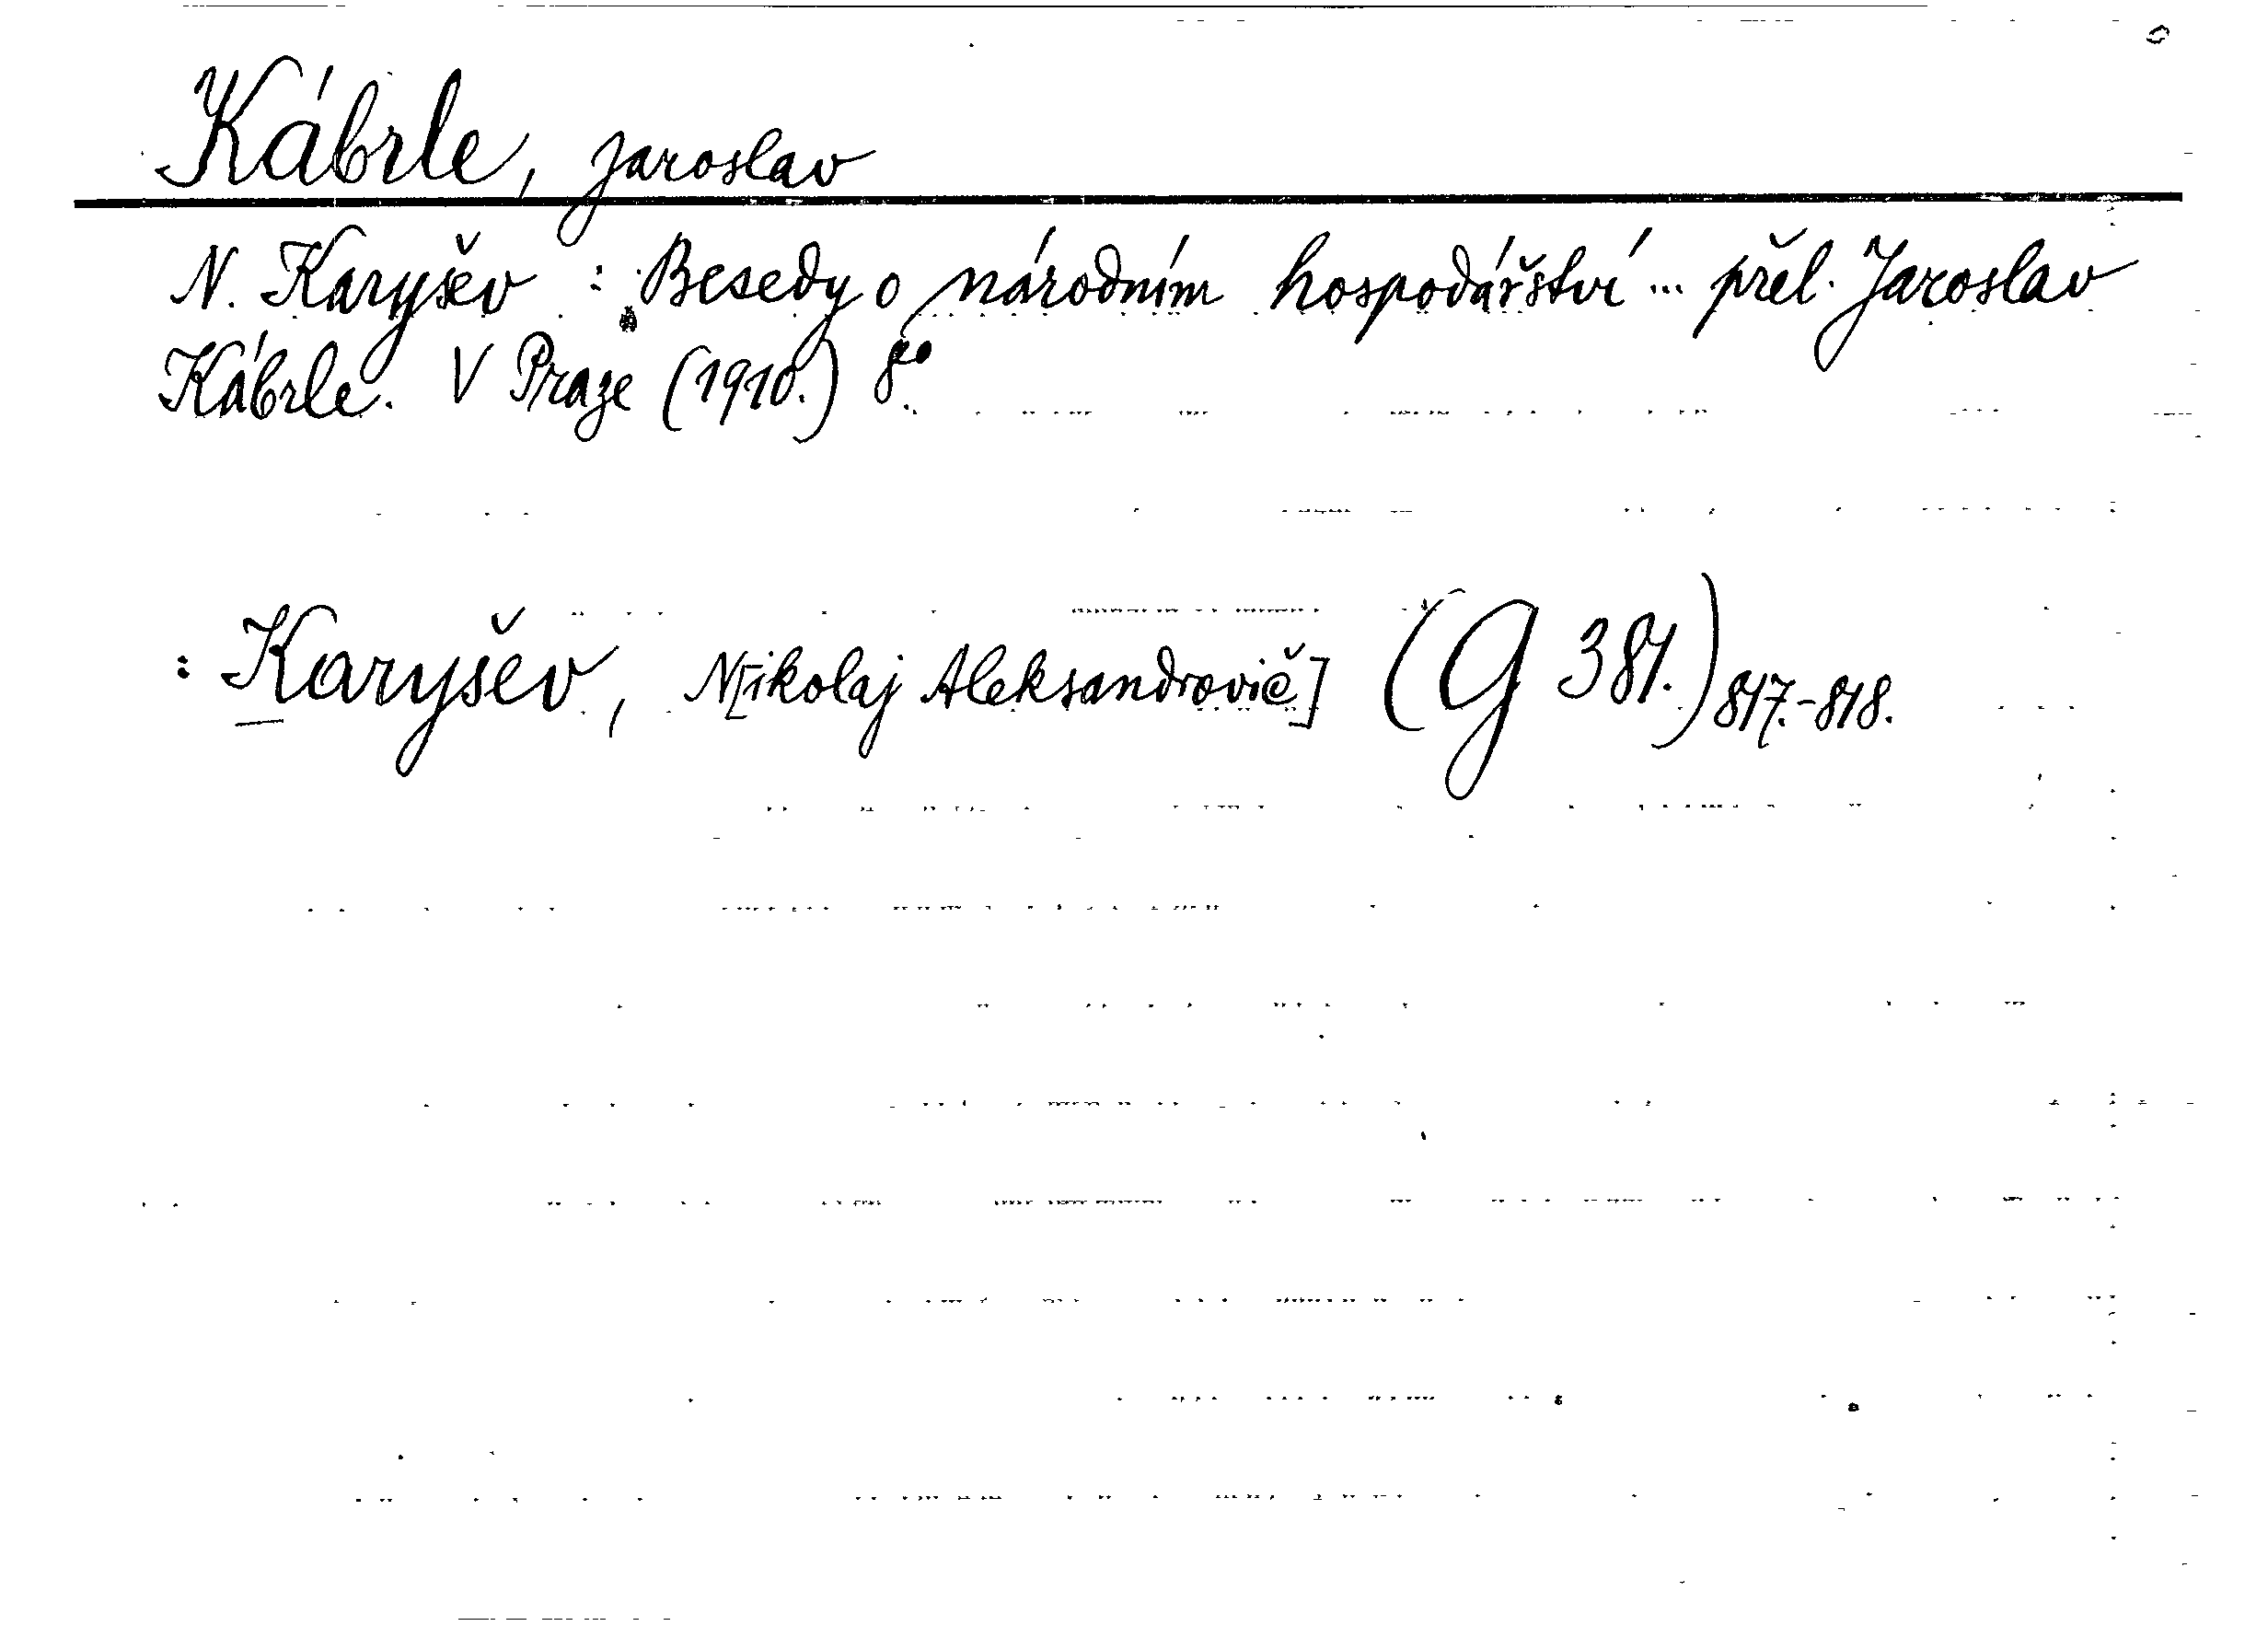 Kábrle, Jaroslav
N. Karyšev : Besedy o národním hospodářství ... přel. Jaroslav
Kábrle. V Praze (1910.) 8°.
: Karyšev, N[ikolaj Aleksandrovič] (G 381.) 817.-818.